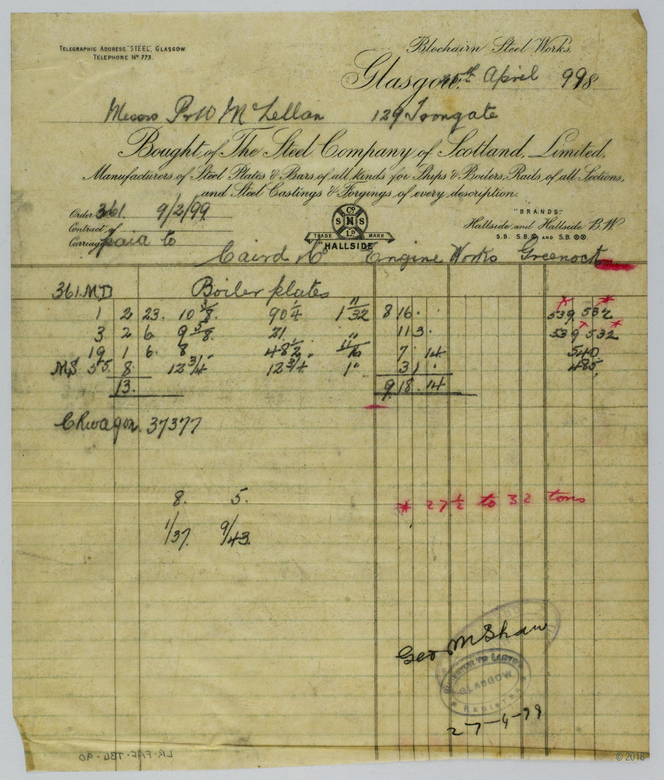 Blochairn Steel Works.
TELEGRAPHIC ADDRESS "STEEL", GLASGOW
TELEPHONE No 773.
Glasgow, April 998
Messrs P & W McLellan 129 Trongate
Bought of The Steel Company of Scotland, Limited,
Manufacturers of Steel Plates & Bars of all kinds for Ships & Boilers, Rails of all Sections,
and Steel Castings & Forgings of every description.
Order 361. 9/2/99
Contract of
Carriage paid to
Co SNS LD
TRADE MARK
"HALLSIDE"
"BRANDS"
Hallside and Hallside B.W
S.B. S.B. AND S.B.
Caird & Co Engine Works Greenock
361 MD Boiler plates
1 2 23. 10 3/8 90 1/4 1 1/32" 8 16. 539 532
3 2 6 9 5/8 21 " 11 3. 539 532
19 1 6 8 48 1/2 11/16" 7 14 540
MS 55. 8. 12 3/4 12 3/4 1" 31 485
13. 9 18. 14
C Rwagon. 37377
8. 5.
1/37. 9/43.
* 27 1/2 to 32 tons
Geo McShaw
GLASGOW
27-4-99
LR-FAF-TBL-90
© 2018